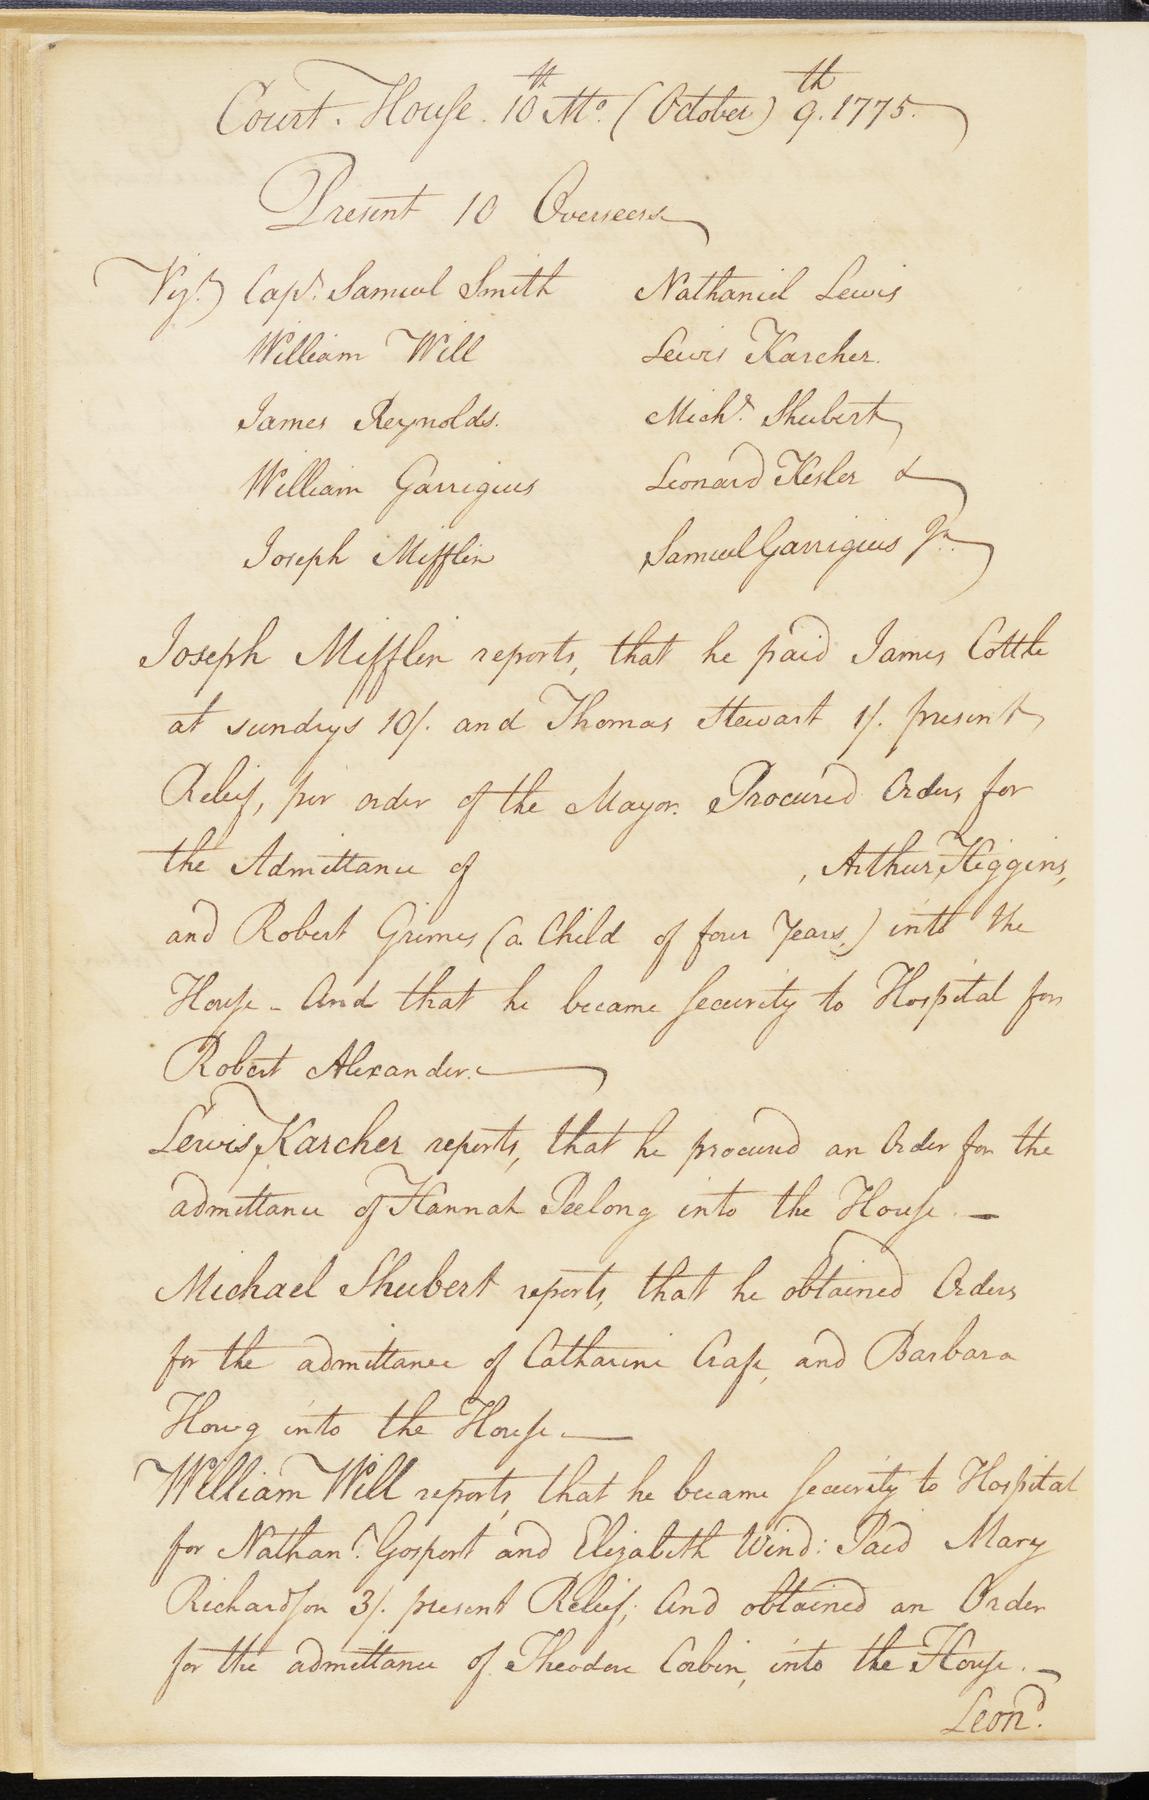 Court House. 10th Mo. (October) 9th. 1775.
Present 10 Overseers
Vizt. Capt. Samuel Smith Nathaniel Lewis
William Will Lewis Karcher.
James Reynolds. Michl. Shubert
William Garrigues Leonard Kesler &
Joseph Mifflin Samuel Garrigues Jr.
Joseph Mifflin reports, that he paid James Cottle
at sundrys 10/. and Thomas Stewart 1/. present
Relief, per order of the Mayor. Procured Orders for
the Admittance of , Arthur Higgins,
and Robert Grimes (a Child of four Years,) into the
House - And that he became Security to Hospital for
Robert Alexander.
Lewis Karcher reports, that he procured an Order for the
admittance of Hannah Peelong into the House. —
Michael Shubert reports, that he obtained Orders
for the admittance of Catharine Crase, and Barbara
into the House —
William Will reports, that he became Security to Hospital
for Nathanl. Gosport and Elizabeth Wind: Paid Mary
Richardson 3/. present Relief; And obtained an Order
for the admittance of Theodore Corbin, into the House. —
Leond.